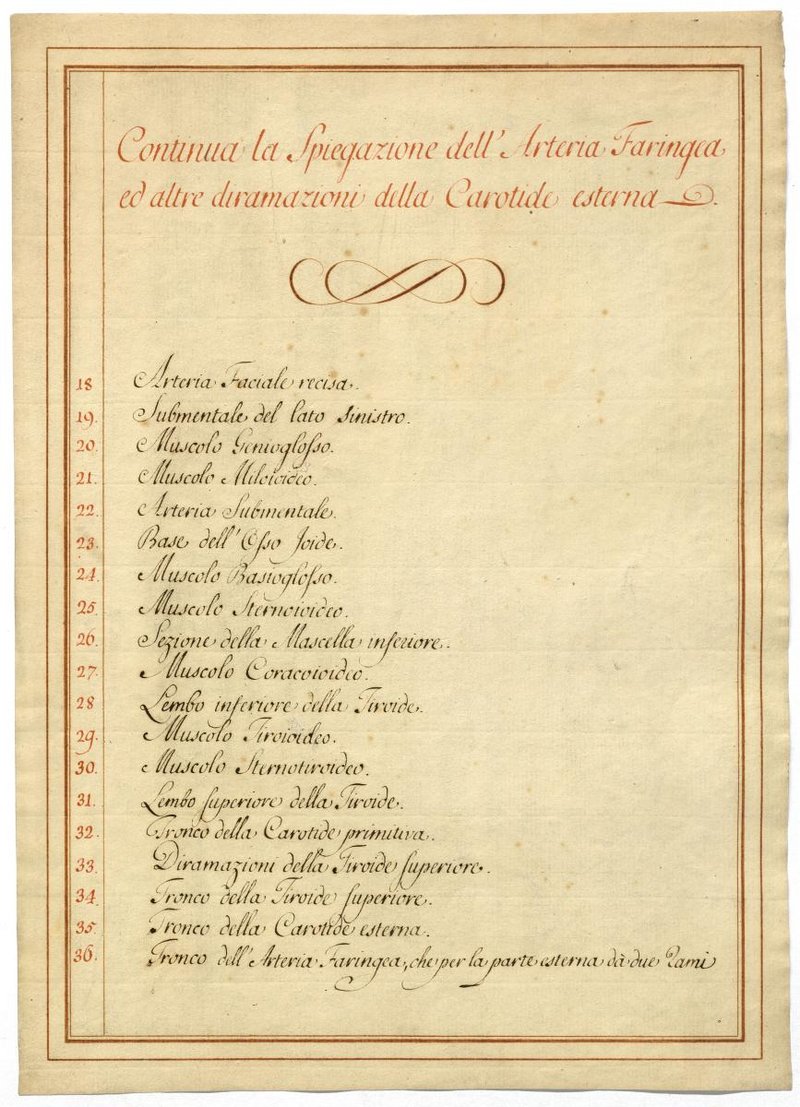 Continua la Spiegazione dell'Arteria Faringea
ed altre diramazioni della Carotide esterna.
18 Arteria Faciale recisa.
19. Submentale del lato sinistro.
20. Muscolo Genioglosso.
21. Muscolo Miloioideo.
22. Arteria Submentale.
23. Base dell'Osso Joide.
24. Muscolo Basioglosso.
25. Muscolo Sternoioideo.
26. Sezione della Mascella inferiore.
27. Muscolo Coracoioideo.
28 Lembo inferiore della Tiroide.
29. Muscolo Tiroioideo.
30. Muscolo Sternotiroideo.
31. Lembo superiore della Tiroide.
32. Tronco della Carotide primitiva.
33. Diramazioni della Tiroide superiore.
34. Tronco della Tiroide superiore.
35. Tronco della Carotide esterna.
36. Tronco dell'Arteria Faringea, che per la parte esterna dà due Rami